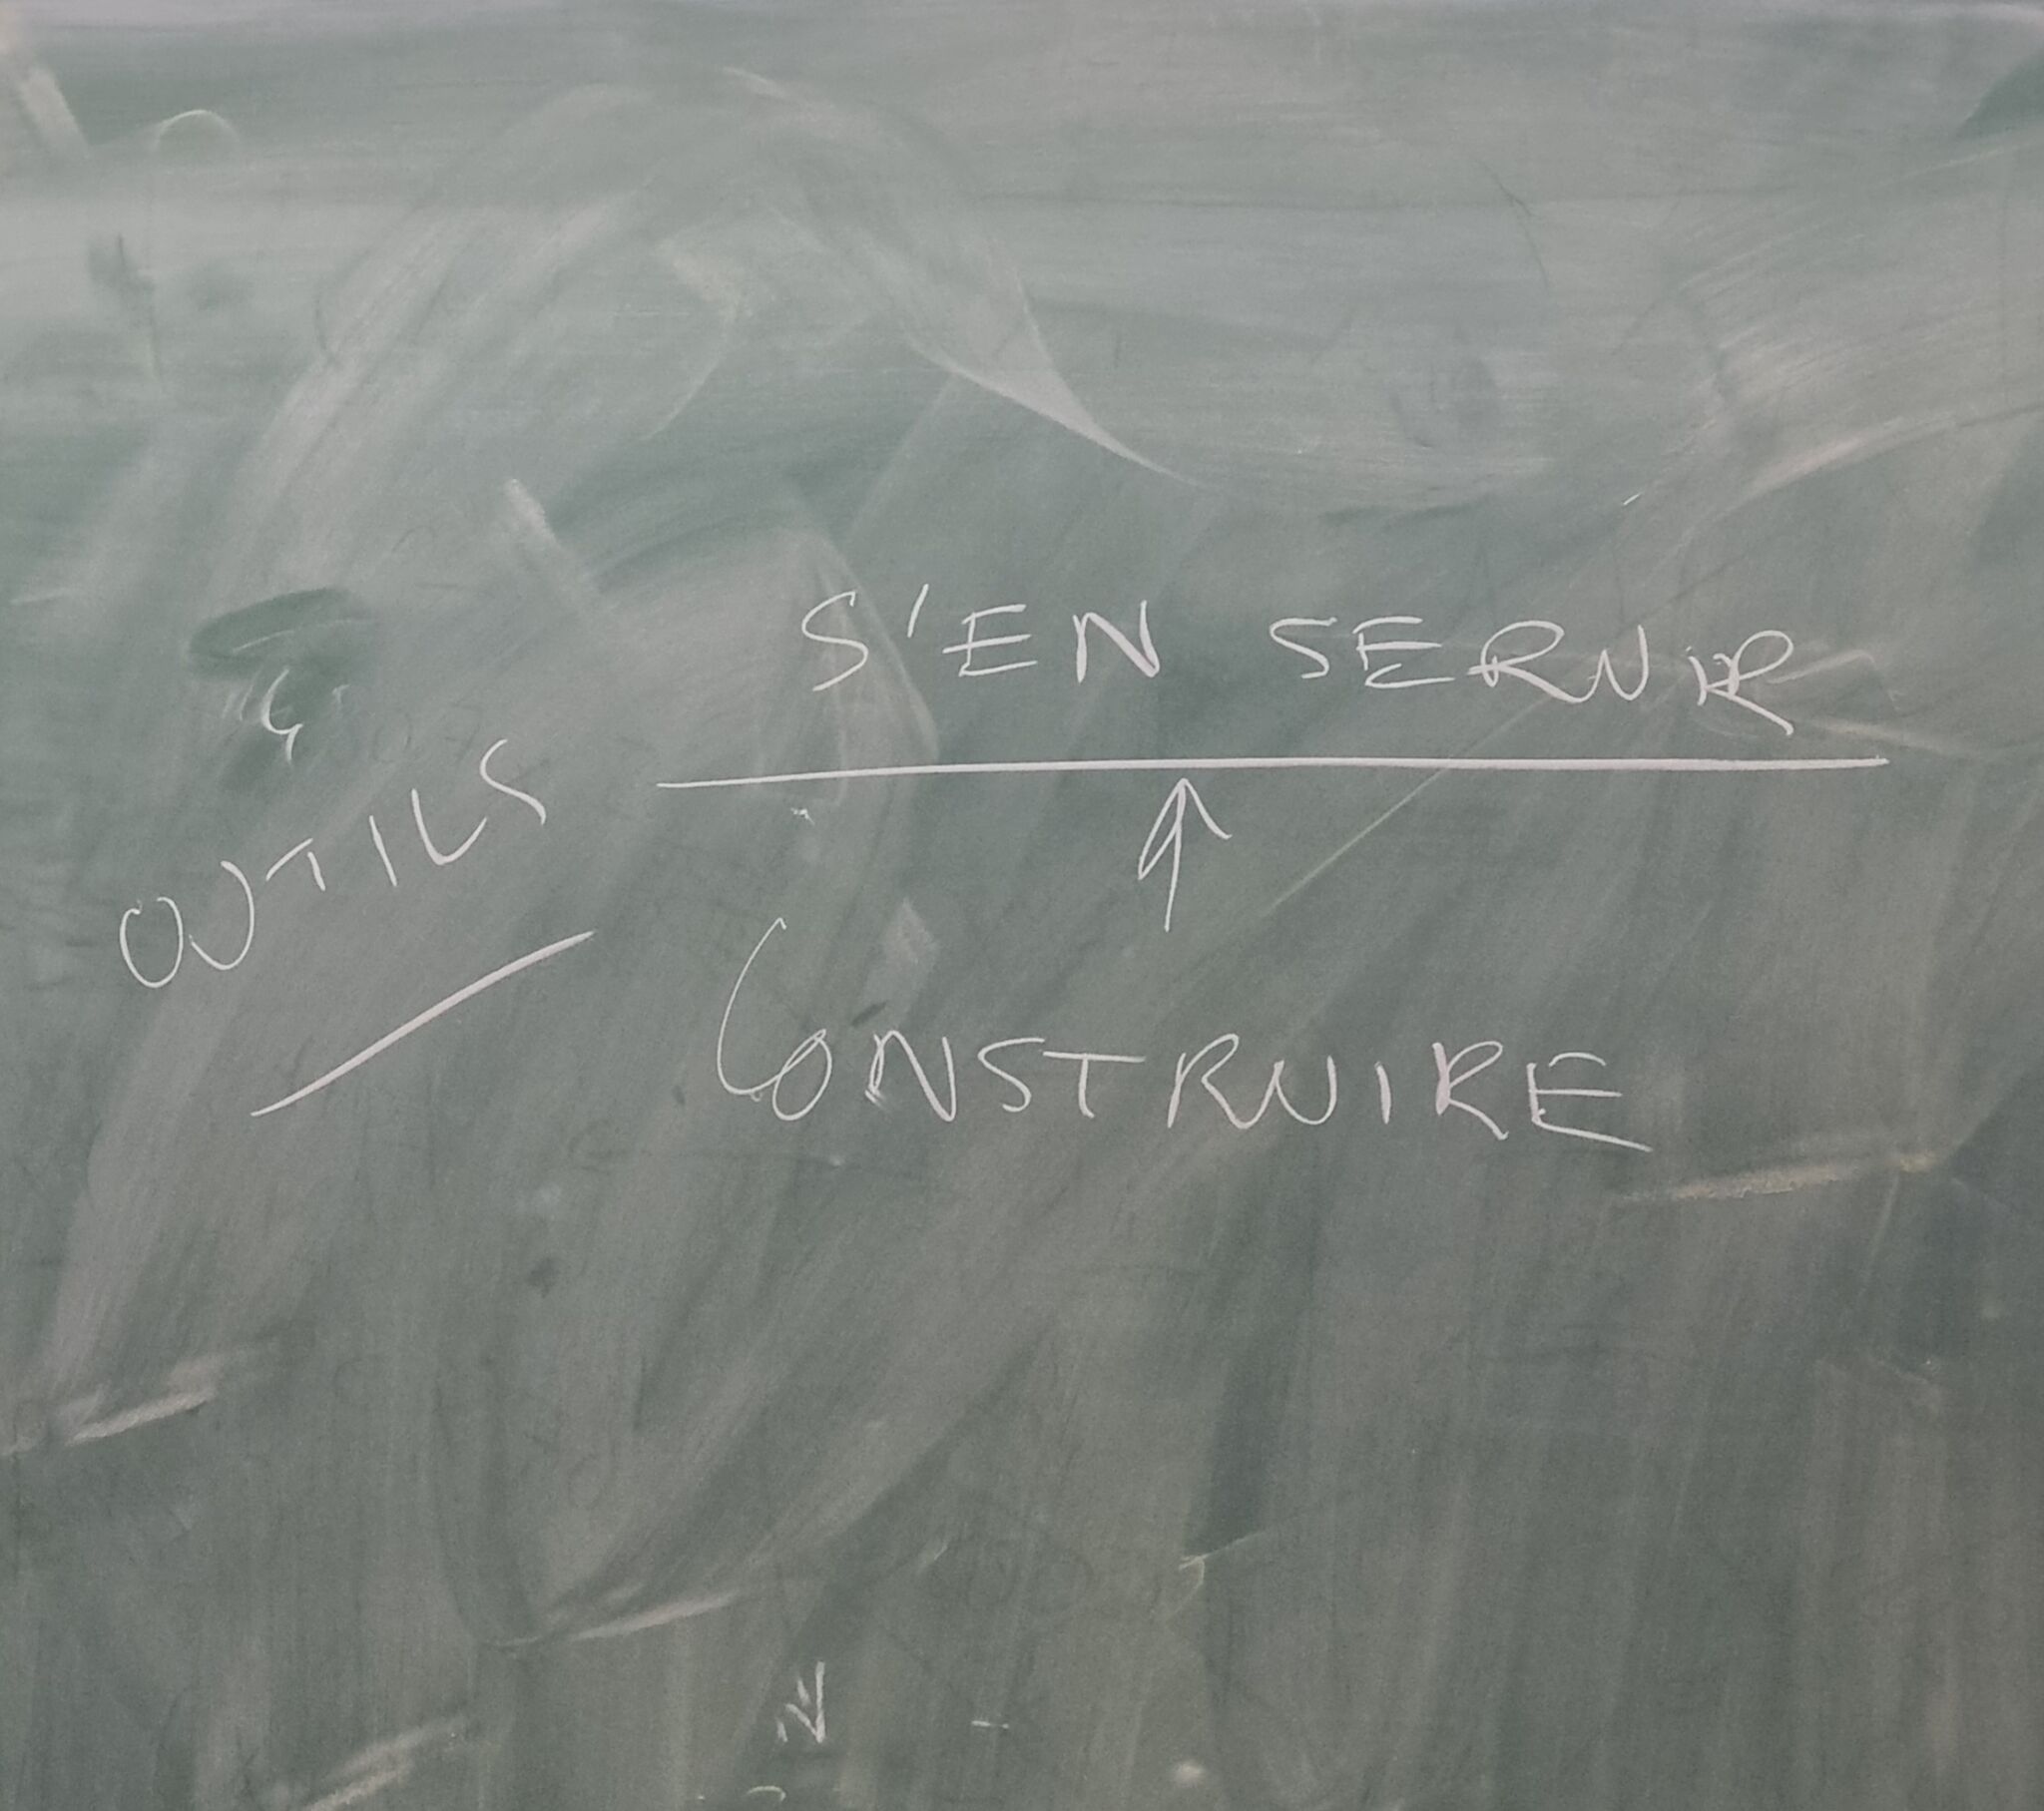 S'EN SERVIR
OUTILS
↑
CONSTRUIRE
N